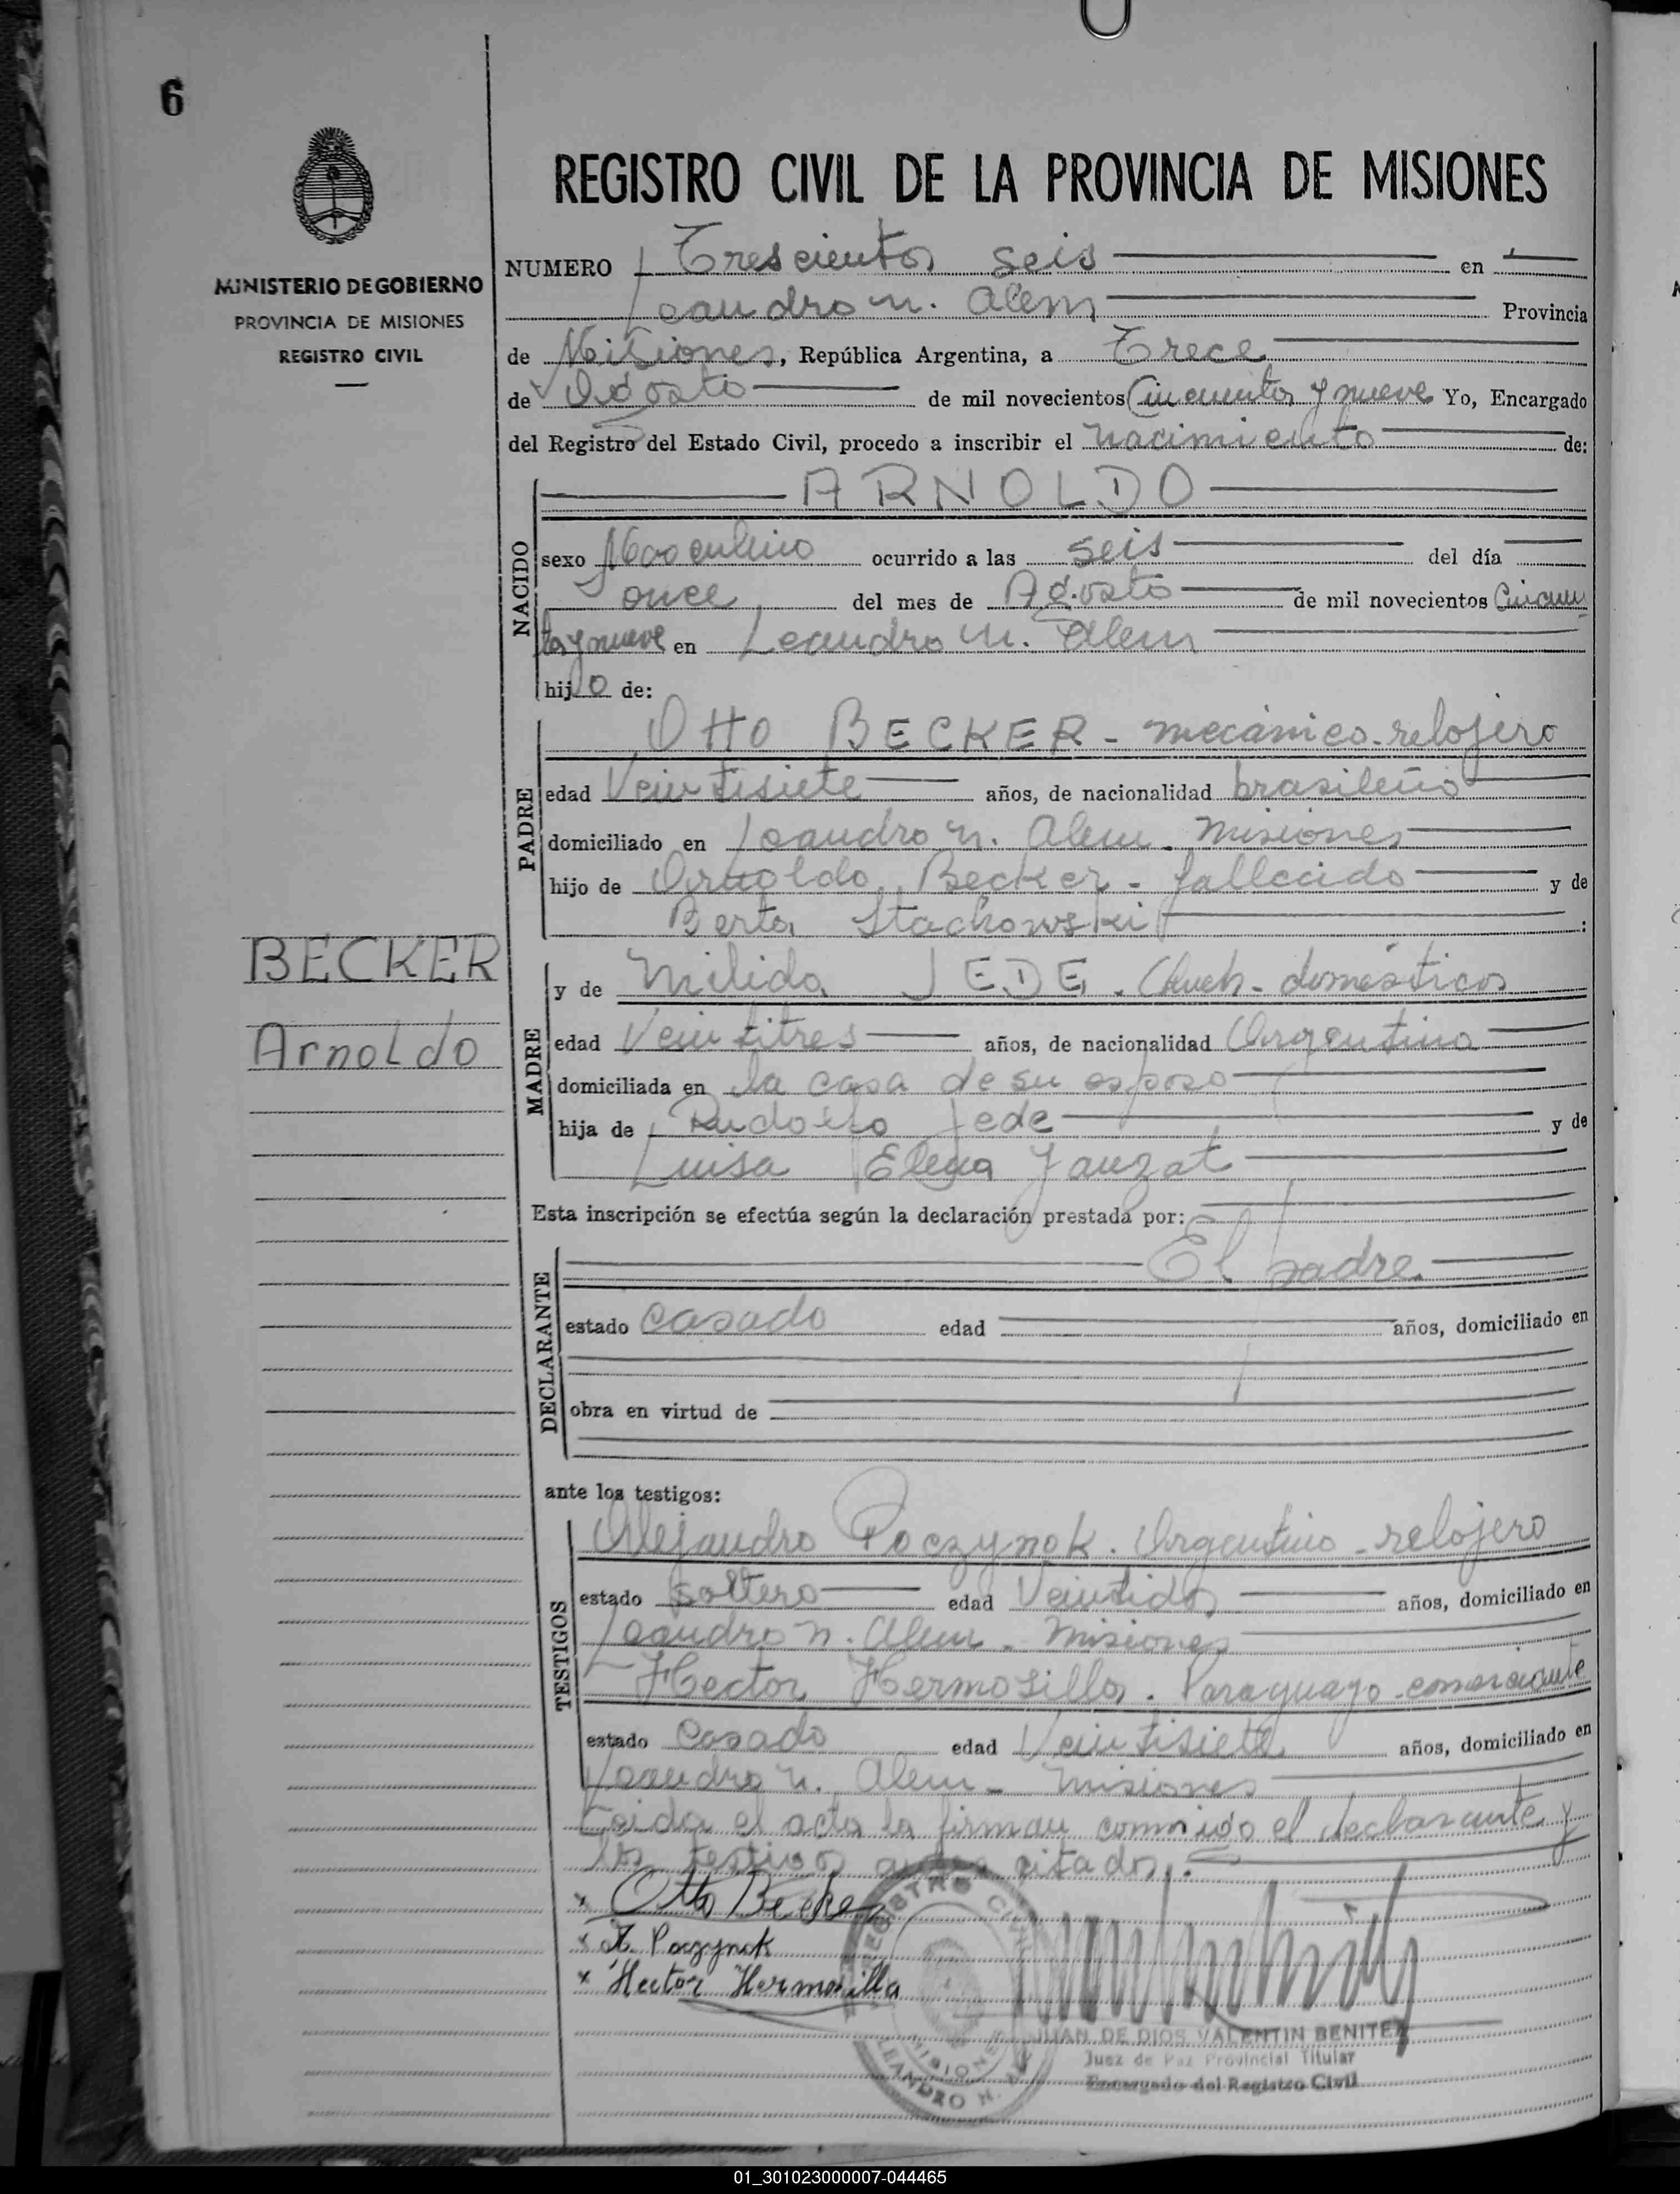 6
REGISTRO CIVIL DE LA PROVINCIA DE MISIONES
MINISTERIO DE GOBIERNO
PROVINCIA DE MISIONES
REGISTRO CIVIL
NUMERO Trescientos seis en
Leandro N. Alem Provincia
de Misiones, República Argentina, a Trece
de Agosto de mil novecientos Cincuenta y nueve Yo, Encargado
del Registro del Estado Civil, procedo a inscribir el nacimiento de:
NACIDO
ARNOLDO
sexo Masculino ocurrido a las seis del día
once del mes de Agosto de mil novecientos Cincuen
ta y nueve en Leandro N. Alem
hijo de:
PADRE
Otto BECKER - mecánico-relojero
edad Veintisiete años, de nacionalidad brasileño
domiciliado en Leandro N. Alem - Misiones
hijo de Arnoldo Becker - fallecido y de
Berta Stachowski :
BECKER
Arnoldo
MADRE
y de Milida JEDE. domésticos
edad Veintitres años, de nacionalidad Argentina
domiciliada en la casa de su esposo
hija de Rudolfo Jede y de
Luisa Elena Janzat
Esta inscripción se efectúa según la declaración prestada por:
DECLARANTE
El padre
estado casado edad años, domiciliado en
obra en virtud de
ante los testigos:
TESTIGOS
Alejandro Poczynok. Argentino - relojero
estado soltero edad Veintidos años, domiciliado en
Leandro N. Alem - Misiones
Hector Hermosilla. Paraguayo - comerciante
estado Casado edad Veintisiete años, domiciliado en
Leandro N. Alem - Misiones
Leida el acta la firman conmigo el declarante y
los testigos antes citados.
x Otto Becker
x A. Poczynok
x Hector Hermosilla
REGISTRO CIVIL
MISIONES
LEANDRO N. ALEM
JUAN DE DIOS VALENTIN BENITEZ
Juez de Paz Provincial Titular
Encargado del Registro Civil
01_301023000007-044465